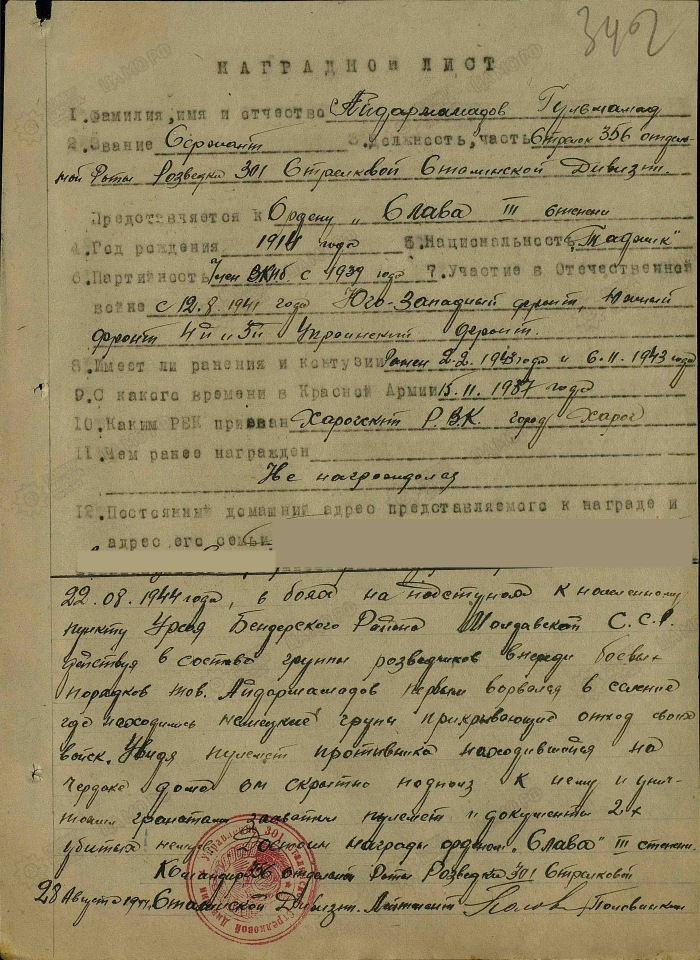 3402
НАГРАДНОЙ ЛИСТ
1. Фамилия, имя и отчество Айдармамадов Гульмамад
2. Звание Сержант 3. Должность, часть Стрелок 356 отдель-
ной Роты Розведки 301 Стрелковой Сталинской Дивизи.
Представляется к Ордену "Слава III степени
4. Год рождения 1914 года 5. Национальность "Таджик"
6. Партийность Член ВКПб с 1939 года 7. Участие в Отечественной
войне с 12.8.1941 года Юго-Западный фронт, Южный
фронт 4й и 3й Украинский фронт.
8. Имеет ли ранения и контузии Ранен 2.2.1943 года и 6.11.1943 года
9. С какого времени в Красной Армии 15.11.1937 года
10. Каким РВК призван Харогский Р.В.К. город Харог
11. Чем ранее награжден
Не награждался
12. Постоянный домашний адрес представляемого к награде и
адрес его семьи
22.08.1944 года, в боях на подступах к населенному
пункту Урсая Бендерского Района Молдавской С.С.Р.
действуя в составе группы розведчиков впереди боевых
порядков тов. Айдармамадов первым ворвался в селение
где находились немецкие групы прикрывающие отход своих
войск. Увидя пулемет противника находившейся на
чердаке дома он скрытно подполз к нему и унич-
тожил гранатами захватил пулемет и документы 2-х
убитых немцев Достоин награды орденом "Слава" III степени.
Командир 356 отдельной Роты Розведки 301 Стрелковой
28 Августа 1944. Сталинской Дивизи. Лейтенант